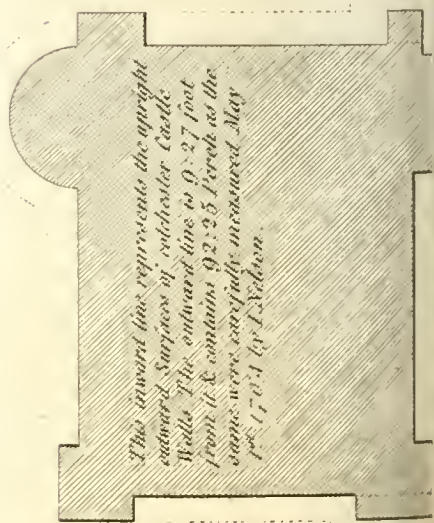 This inward line represents the upright
outward Surfaces of colchester Castle
Walls. The outward line is 0:27 foot
from it & contains 92:25 Perch as the
same were carefully measured May
1st 1704 by I Nelson.